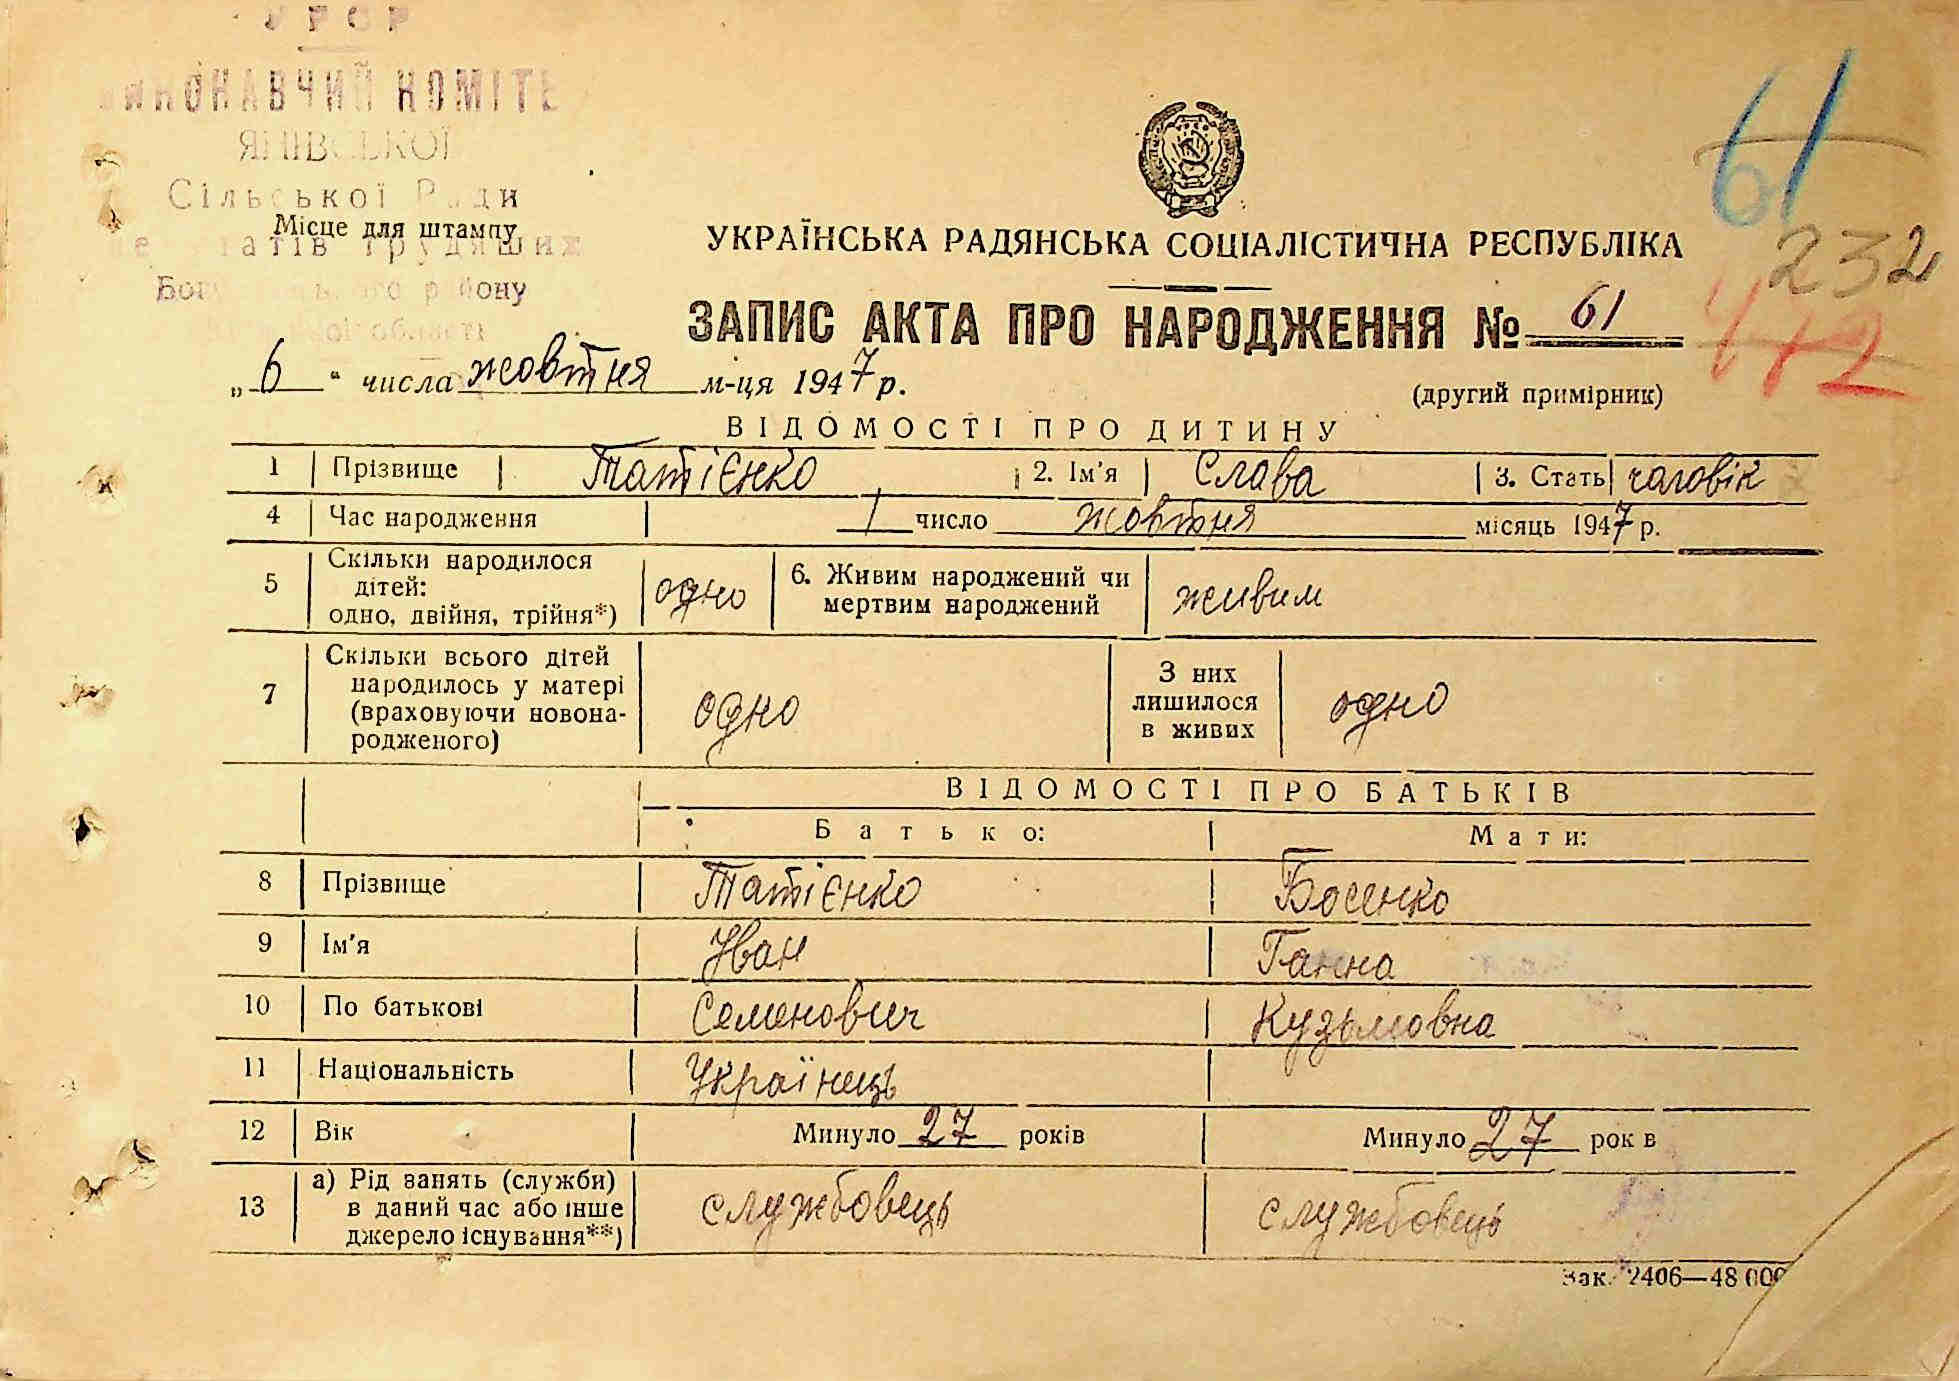 УРСР
ВИКОНАВЧИЙ КОМІТЕ
ЯНІВСЬКОЇ
Сільської Ради
Місце для штампу
депутатів трудящих
району
області
УКРАЇНСЬКА РАДЯНСЬКА СОЦІАЛІСТИЧНА РЕСПУБЛІКА
ЗАПИС АКТА ПРО НАРОДЖЕННЯ № 61
61
232
„6" числа жовтня м-ця 1947 р.
(другий примірник)
ВІДОМОСТІ ПРО ДИТИНУ
1 Прізвище Татієнко 2. Ім'я Слава 3. Стать чоловік
4 Час народження 1 число жовтня місяць 1947 р.
5 Скільки народилося дітей: одно, двійня, трійня*) одно 6. Живим народжений чи мертвим народжений живим
7 Скільки всього дітей народилось у матері (враховуючи новона-родженого) одно З них лишилося в живих одно
ВІДОМОСТІ ПРО БАТЬКІВ
Батько: Мати:
8 Прізвище Татієнко Босенко
9 Ім'я Іван Ганна
10 По батькові Семенович Кузьмовна
11 Національність Українець
12 Вік Минуло 27 років Минуло 27 рок в
13 а) Рід занять (служби) в даний час або інше джерело існування**) службовець службовець
Зак. 2406—48 000